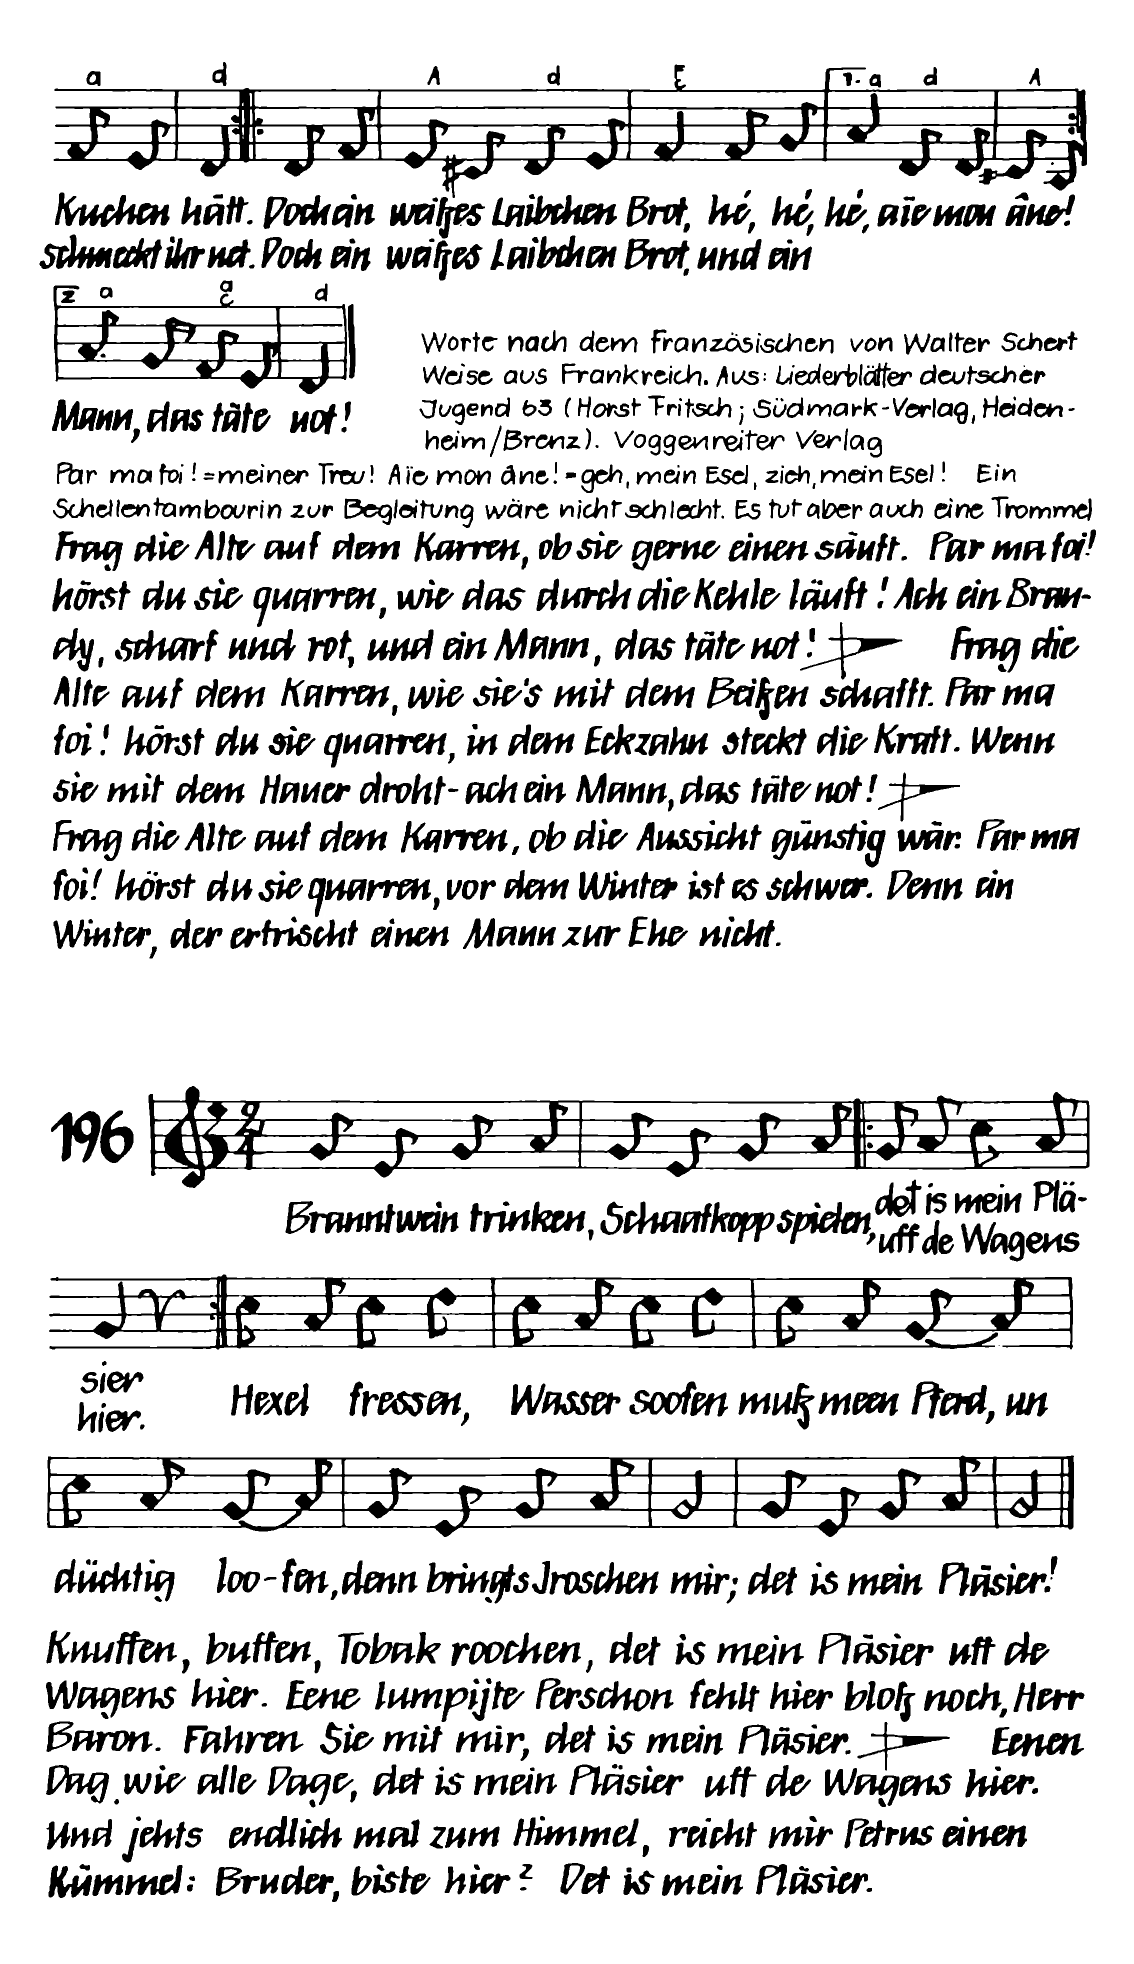 a d A d E 1. a d A
Kuchen hätt. Doch ein weißes Laibchen Brot, hé, hé, hé, aïe mon âne!
schmeckt ihr net. Doch ein weißes Laibchen Brot, und ein
2 a a E d
Mann, das täte not!
Worte nach dem Französischen von Walter Schert
Weise aus Frankreich. Aus: Liederblätter deutscher
Jugend 63 (Horst Fritsch; Südmark-Verlag, Heiden-
heim/Brenz). Voggenreiter Verlag
Par ma foi! = meiner Treu! Aïe mon âne! = geh, mein Esel, zieh, mein Esel! Ein
Schellentambourin zur Begleitung wäre nicht schlecht. Es tut aber auch eine Trommel
Frag die Alte auf dem Karren, ob sie gerne einen säuft. Par ma foi!
hörst du sie quarren, wie das durch die Kehle läuft! Ach ein Bran-
dy, scharf und rot, und ein Mann, das täte not! Frag die
Alte auf dem Karren, wie sie's mit dem Beißen schafft. Par ma
foi! hörst du sie quarren, in dem Eckzahn steckt die Kraft. Wenn
sie mit dem Hauer droht - ach ein Mann, das täte not!
Frag die Alte auf dem Karren, ob die Aussicht günstig wär. Par ma
foi! hörst du sie quarren, vor dem Winter ist es schwer. Denn ein
Winter, der erfrischt einen Mann zur Ehe nicht.
196 2/4
Branntwein trinken, Schaafkopp spielen, det is mein Plä-
uff de Wagens
sier
hier. Hexel fressen, Wasser soofen muß meen Pferd, un
düchtig loo-fen, denn bringts Jroschen mir; det is mein Pläsier!
Knuffen, buffen, Tobak roochen, det is mein Pläsier uff de
Wagens hier. Eene lumpijte Perschon fehlt hier bloß noch, Herr
Baron. Fahren Sie mit mir, det is mein Pläsier. Eenen
Dag wie alle Dage, det is mein Pläsier uff de Wagens hier.
Und jehts endlich mal zum Himmel, reicht mir Petrus einen
Kümmel: Bruder, biste hier? Det is mein Pläsier.